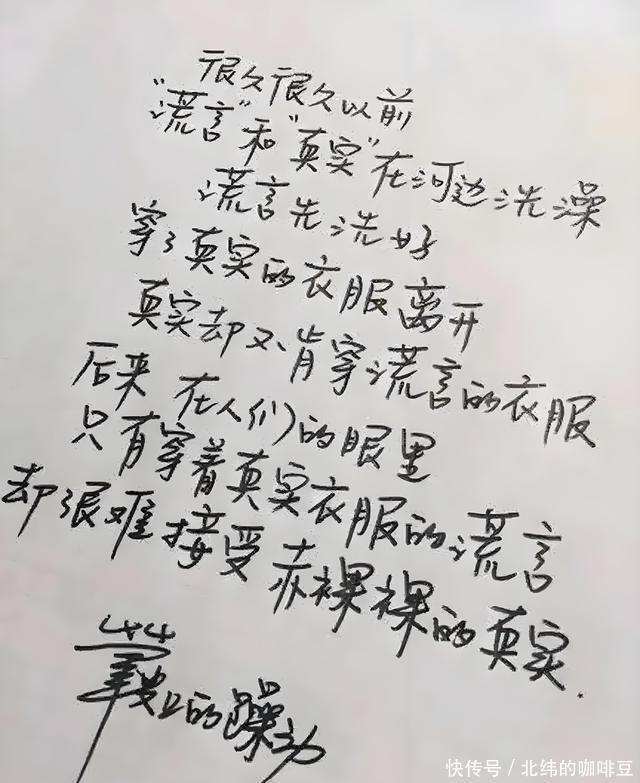 很久很久以前
“谎言”和“真实”在河边洗澡
谎言先洗好
穿了真实的衣服离开
真实却不肯穿谎言的衣服
后来 在人们的眼里
只有穿着真实衣服的谎言
却很难接受赤裸裸的真实.
的躁动
快传号/北纬的咖啡豆